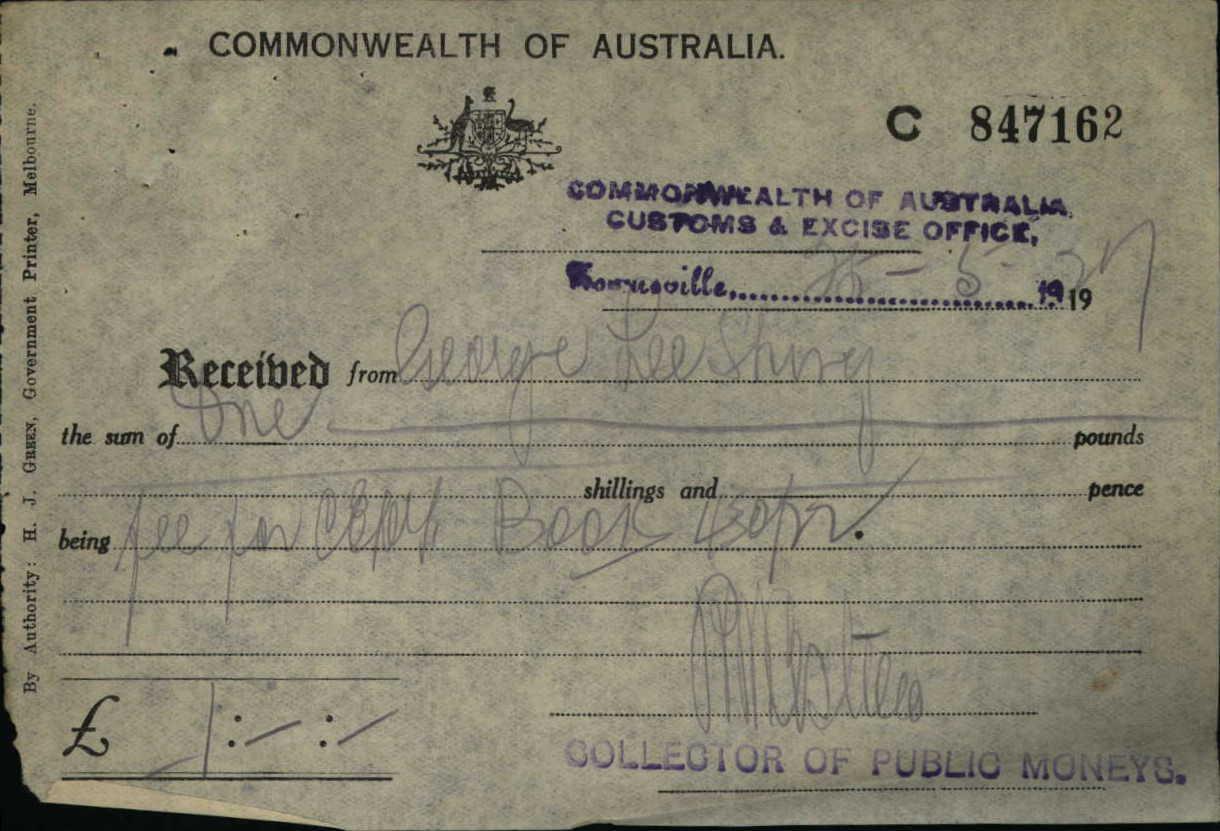 COMMONWEALTH OF AUSTRALIA.
C 847162
COMMONWEALTH OF AUSTRALIA
CUSTOMS & EXCISE OFFICE,
Townsville, - 5 - 19 19
Received from George Lee Shing
the sum of One pounds
shillings and pence
being fee for Book
£ 1 : - : -
COLLECTOR OF PUBLIC MONEYS.
By Authority: H. J. GREEN, Government Printer, Melbourne.